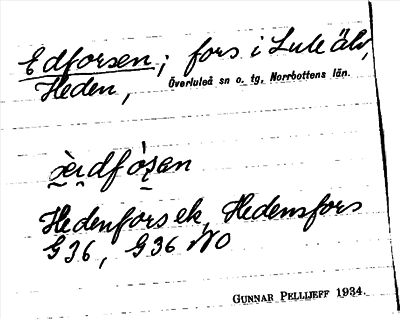 Edforsen; fors i Lule älv,
Heden, Överluleå sn o. tg. Norrbottens län.
Hedenfors ek, Hedensfors
G 36, G 36 NO
GUNNAR PELLIJEFF 1934.